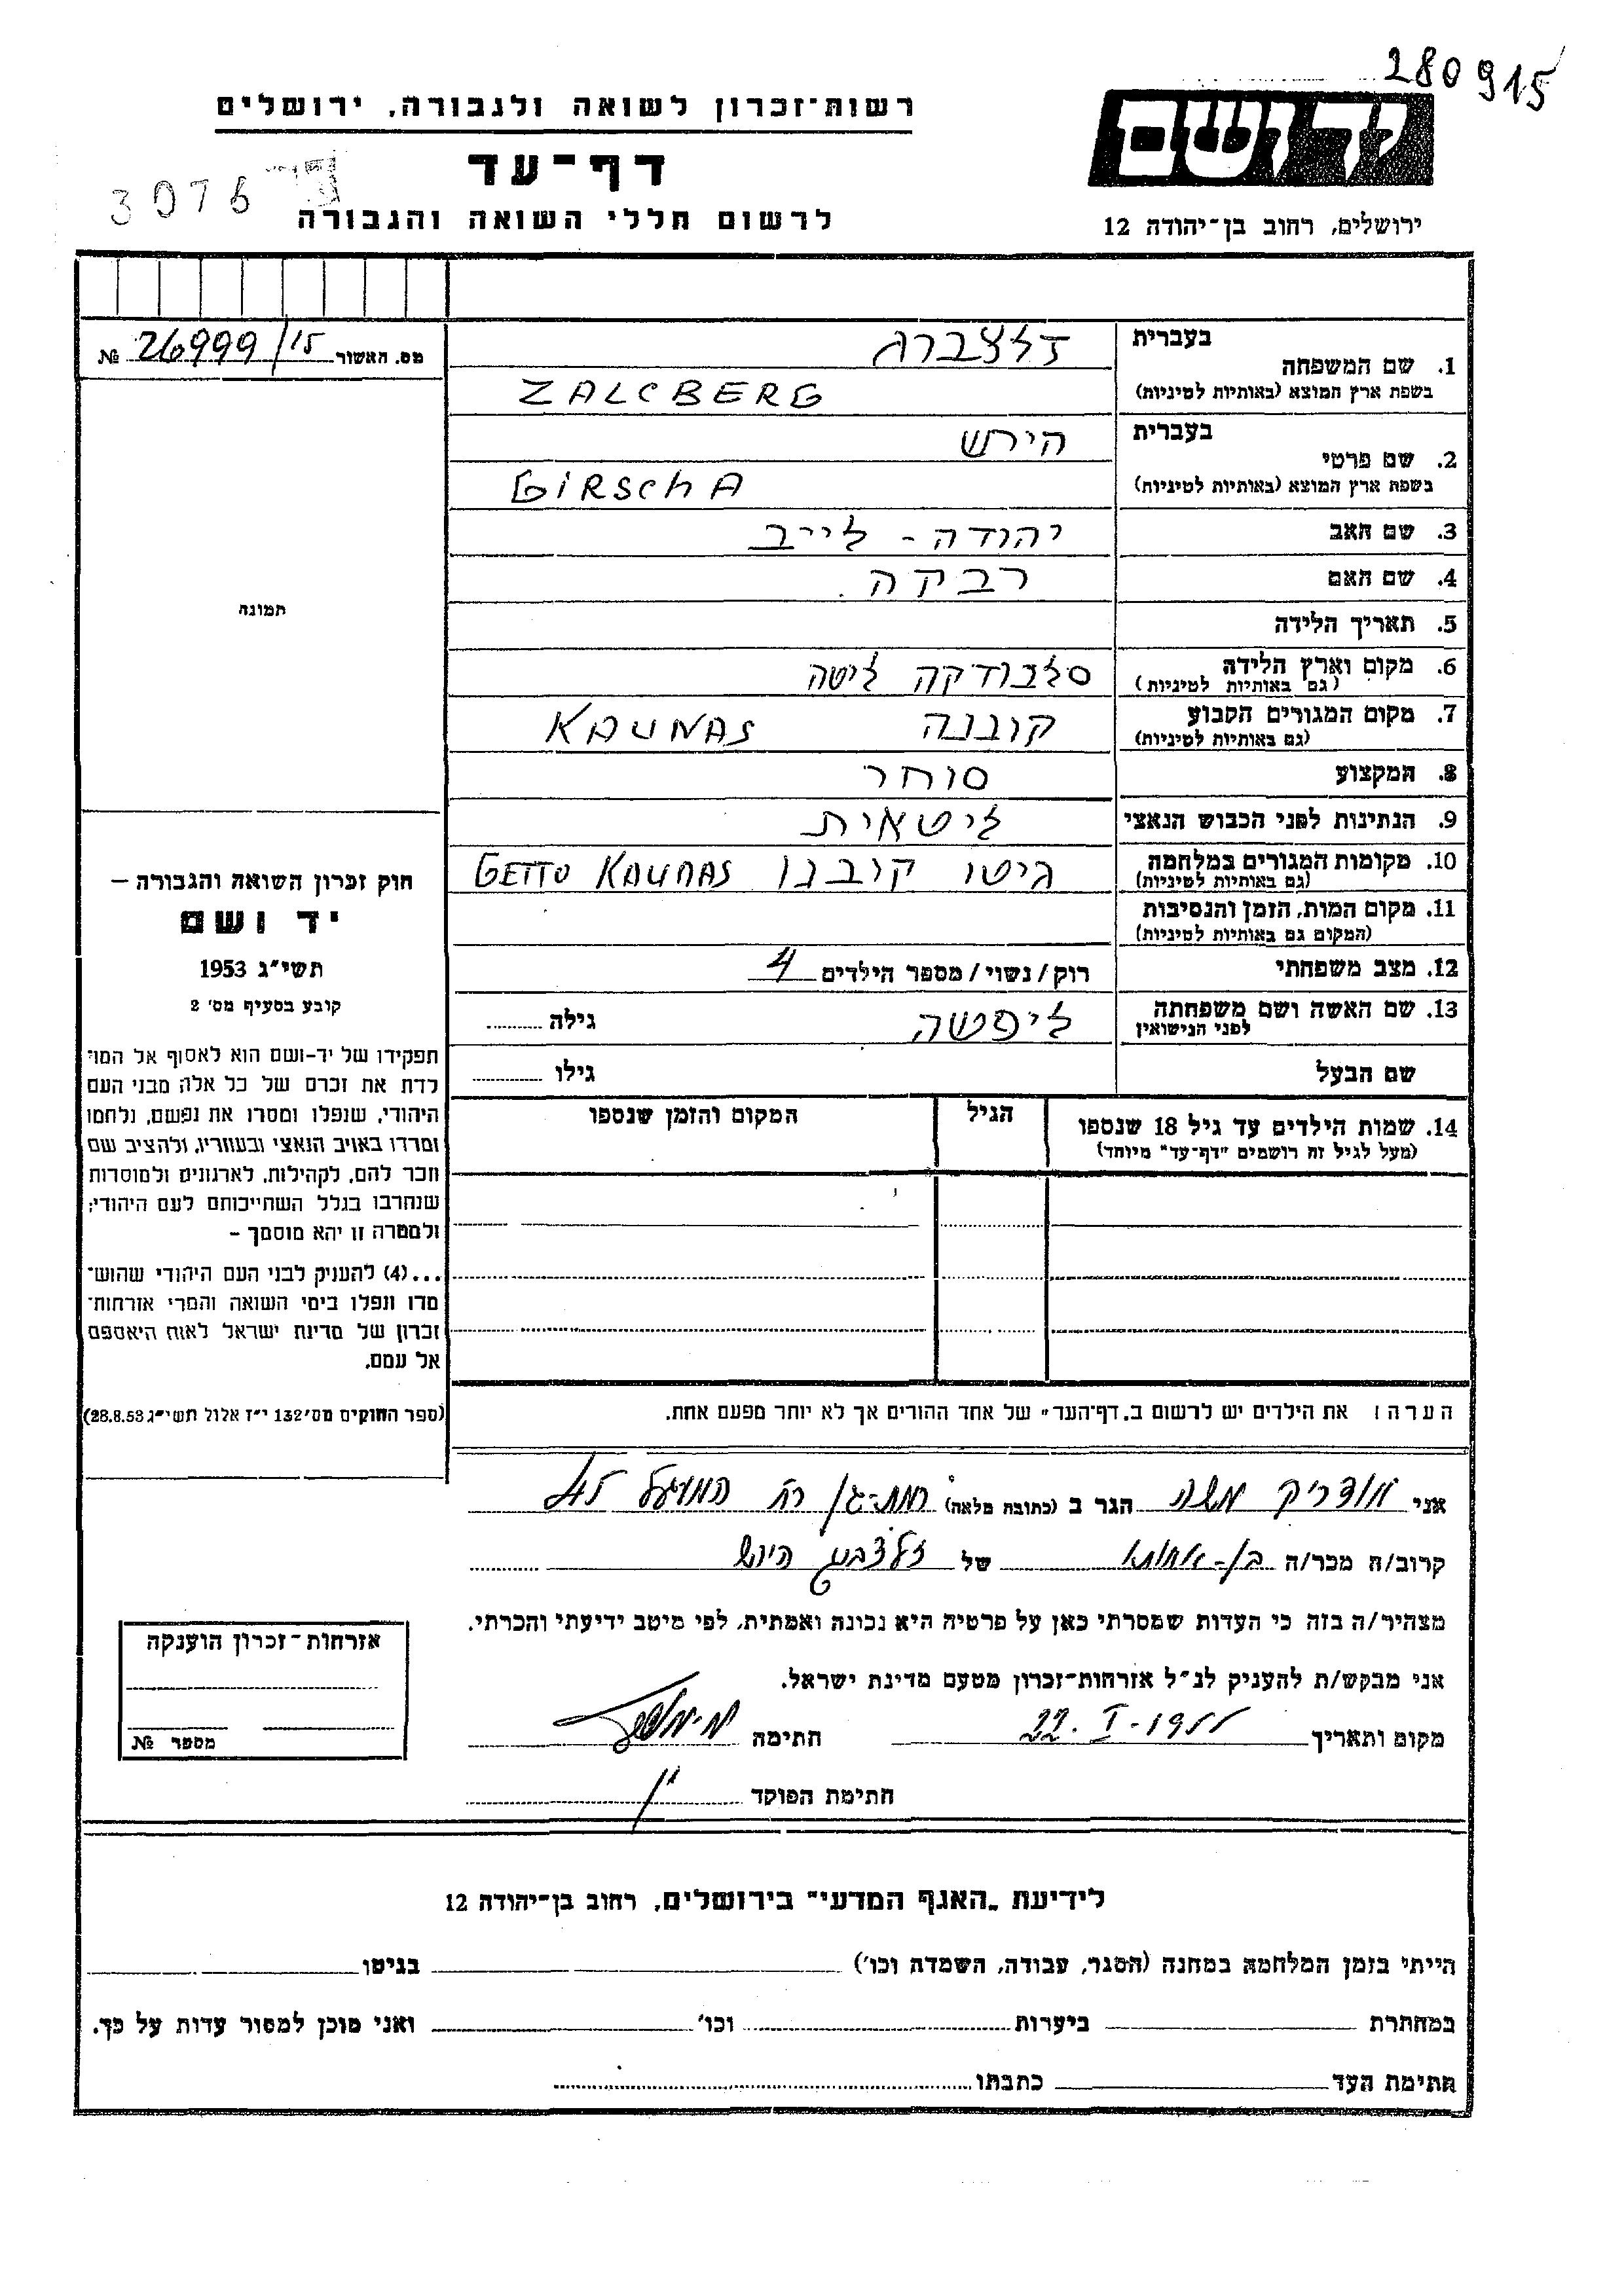 280915
יד ושם
רשות-זכרון לשואה ולגבורה, ירושלים
דף-עד
3076
לרשום חללי השואה והגבורה
ירושלים, רחוב בן-יהודה 12
מס. האשור 26999/15 №
1. שם המשפחה
בעברית זלצברג
בשפת ארץ המוצא (באותיות לטיניות) ZALCBERG
2. שם פרטי
בעברית הירש
בשפת ארץ המוצא (באותיות לטיניות) GIRSCHA
3. שם האב יהודה - לייב
4. שם האם רבקה.
5. תאריך הלידה
6. מקום וארץ הלידה סלבודקה ליטה
(גם באותיות לטיניות)
7. מקום המגורים הקבוע קובנה KAUNAS
(גם באותיות לטיניות)
8. המקצוע סוחר
9. הנתינות לפני הכבוש הנאצי ליטאית
10. מקומות המגורים במלחמה גיטו קובנו GETTO KAUNAS
(גם באותיות לטיניות)
11. מקום המות, הזמן והנסיבות
(המקום גם באותיות לטיניות)
12. מצב משפחתי רוק/נשוי/מספר הילדים 4
13. שם האשה ושם משפחתה ליפשה גילה
לפני הנישואין
שם הבעל גילו
14. שמות הילדים עד גיל 18 שנספו הגיל המקום והזמן שנספו
(מעל לגיל זה רושמים "דף-עד" מיוחד)
הערה: את הילדים יש לרשום ב"דף-העד" של אחד ההורים אך לא יותר מפעם אחת.
תמונה
חוק זכרון השואה והגבורה –
יד ושם
תשי"ג 1953
קובע בסעיף מס' 2
תפקידו של יד-ושם הוא לאסוף אל המו־
לדת את זכרם של כל אלה מבני העם
היהודי, שנפלו ומסרו את נפשם, נלחמו
ומרדו באויב הנאצי ובעוזריו, ולהציב שם
וזכר להם, לקהילות, לארגונים ולמוסדות
שנחרבו בגלל השתייכותם לעם היהודי;
ולמטרה זו יהא מוסמך –
...(4) להעניק לבני העם היהודי שהוש־
מדו ונפלו בימי השואה והמרי אזרחות־
זכרון של מדינת ישראל לאות היאספם
אל עמם.
(ספר החוקים מס' 132 י"ז אלול תשי"ג 28.8.53)
אני משה הגר ב (כתובת מלאה) רמת-גן רח
קרוב/ה מכר/ה בן-אחותו של זלצברג הירש
מצהיר/ה בזה כי העדות שמסרתי כאן על פרטיה היא נכונה ואמתית, לפי מיטב ידיעתי והכרתי.
אני מבקש/ת להעניק לנ"ל אזרחות-זכרון מטעם מדינת ישראל.
מקום ותאריך 22. I - חתימה
חתימת הפוקד
אזרחות-זכרון הוענקה
מספר №
לידיעת "האגף המדעי" בירושלים, רחוב בן-יהודה 12
הייתי בזמן המלחמה במחנה (הסגר, עבודה, השמדה וכו') בגיטו
במחתרת ביערות וכו' ואני מוכן למסור עדות על כך.
חתימת העד כתבתו